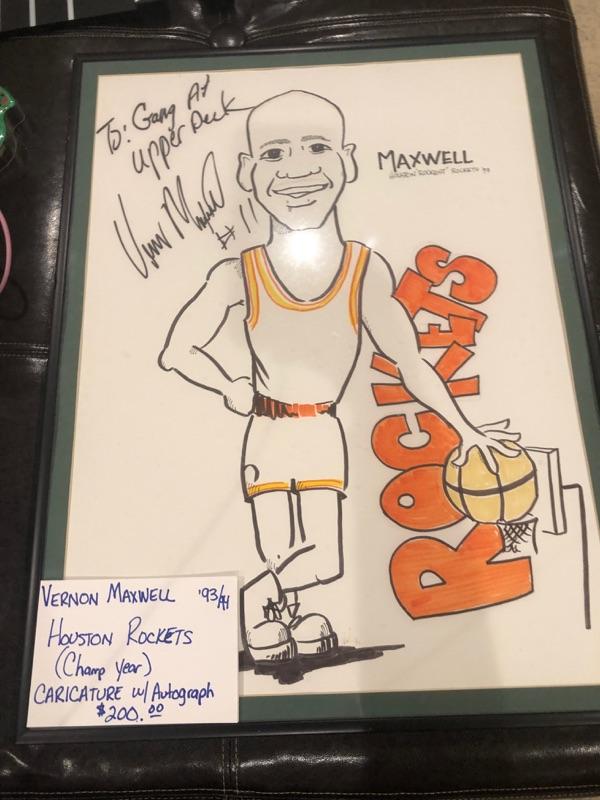 To: Gang At
Upper Deck
Vern Maxwell
#11
MAXWELL
HOUSTON "ROCKENT" ROCKETS
ROCKETS
VERNON MAXWELL '93/94
HOUSTON ROCKETS
(Champ Year)
CARICATURE w/ Autograph
$200.00